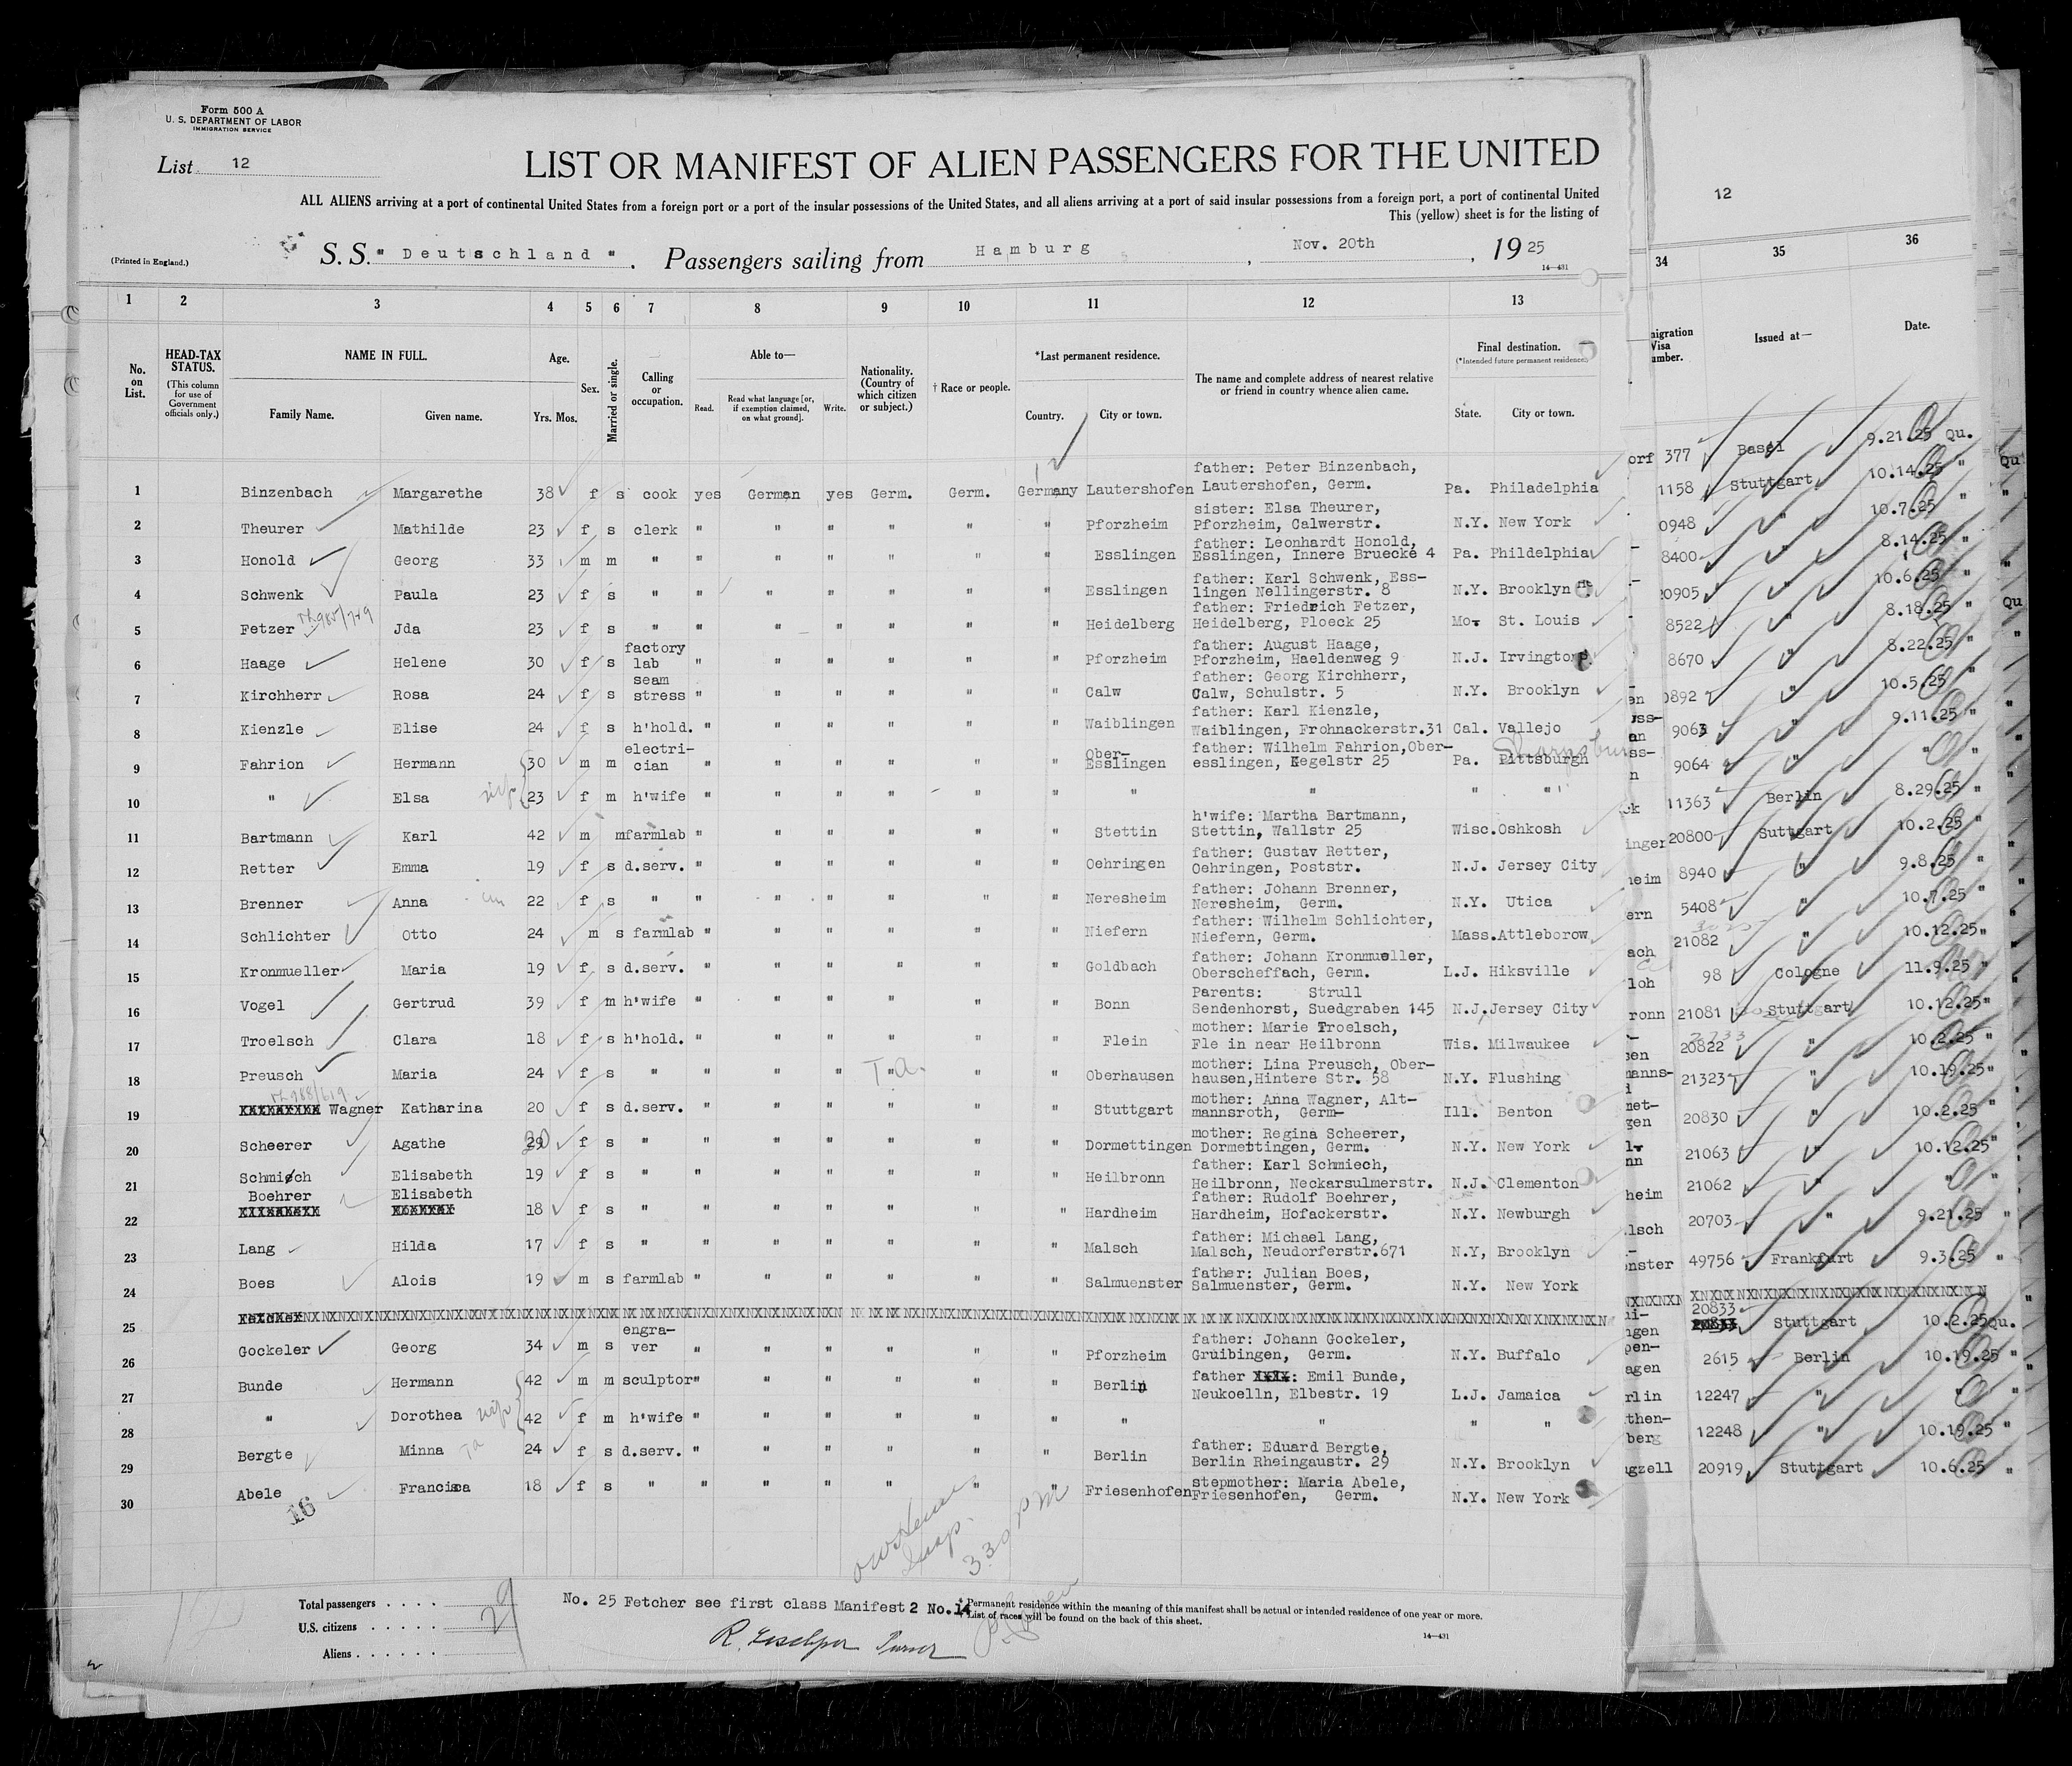 Form 500 A
U. S. DEPARTMENT OF LABOR
IMMIGRATION SERVICE
List 12
LIST OR MANIFEST OF ALIEN PASSENGERS FOR THE UNITED
ALL ALIENS arriving at a port of continental United States from a foreign port or a port of the insular possessions of the United States, and all aliens arriving at a port of said insular possessions from a foreign port, a port of continental United
This (yellow) sheet is for the listing of
(Printed in England.)
S. S. " Deutschland ". Passengers sailing from Hamburg, Nov. 20th, 1925
14—431
12
1 2 3 4 5 6 7 8 9 10 11 12 13 34 35 36
No. on List.
HEAD-TAX STATUS.
(This column for use of Government officials only.)
NAME IN FULL.
Family Name. Given name.
Age.
Yrs. Mos.
Sex.
Married or single.
Calling or occupation.
Able to—
Read. Read what language [or, if exemption claimed, on what ground]. Write.
Nationality. (Country of which citizen or subject.)
† Race or people.
*Last permanent residence.
Country. City or town.
The name and complete address of nearest relative or friend in country whence alien came.
Final destination.
(*Intended future permanent residence.)
State. City or town.
migration Visa umber.
Issued at—
Date.
father: Peter Binzenbach,
1 Binzenbach Margarethe 38 f s cook yes German yes Germ. Germ. Germany Lautershofen Lautershofen, Germ. Pa. Philadelphia orf 377 Basel 9.21.25 Qu.
sister: Elsa Theurer,
2 Theurer Mathilde 23 f s clerk " " " " " " Pforzheim Pforzheim, Calwerstr. N.Y. New York 1158 Stuttgart 10.14.25 "
father: Leonhardt Honold,
3 Honold Georg 33 m m " " " " " " " Esslingen Esslingen, Innere Bruecke 4 Pa. Phildelphia 0948 " 10.7.25 "
father: Karl Schwenk, Ess-
4 Schwenk Paula 23 f s " " " " " " " Esslingen lingen Nellingerstr. 8 N.Y. Brooklyn 8400 " 8.14.25 "
father: Friedrich Fetzer,
5 Fetzer Jda 23 f s " " " " " " " Heidelberg Heidelberg, Ploeck 25 Mo. St. Louis 20905 " 10.6.25 "
factory father: August Haage,
6 Haage Helene 30 f s lab " " " " " " Pforzheim Pforzheim, Haeldenweg 9 N.J. Irvington 8522 " 8.18.25 "
seam father: Georg Kirchherr,
7 Kirchherr Rosa 24 f s stress " " " " " " Calw Calw, Schulstr. 5 N.Y. Brooklyn 8670 " 8.22.25 "
father: Karl Kienzle,
8 Kienzle Elise 24 f s h'hold. " " " " " " Waiblingen Waiblingen, Frohnackerstr.31 Cal. Vallejo 0892 " 10.5.25 "
electri- Ober- father: Wilhelm Fahrion,Ober-
9 Fahrion Hermann 30 m m cian " " " " " " Esslingen esslingen, Kegelstr 25 Pa. Pittsburgh 9063 " 9.11.25 "
10 " Elsa 23 f m h'wife " " " " " " " " " " 9064 " " "
h'wife: Martha Bartmann,
11 Bartmann Karl 42 m m farmlab " " " " " " Stettin Stettin, Wallstr 25 Wisc.Oshkosh 11363 Berlin 8.29.25 "
father: Gustav Retter,
12 Retter Emma 19 f s d.serv. " " " " " " Oehringen Oehringen, Poststr. N.J. Jersey City 20800 Suttgart 10.2.25 "
father: Johann Brenner,
13 Brenner Anna 22 f s " " " " " " " Neresheim Neresheim, Germ. N.Y. Utica 8940 " 9.8.25 "
father: Wilhelm Schlichter,
14 Schlichter Otto 24 m s farmlab " " " " " " Niefern Niefern, Germ. Mass.Attleborow 5408 " 10.7.25 "
father: Johann Kronmueller,
15 Kronmueller Maria 19 f s d.serv. " " " " " " Goldbach Oberscheffach, Germ. L.J. Hiksville 21082 " 10.12.25 "
Parents: Strull
16 Vogel Gertrud 39 f m h'wife " " " " " " Bonn Sendenhorst, Suedgraben 145 N.J.Jersey City 98 Cologne 11.9.25 "
mother: Marie Troelsch,
17 Troelsch Clara 18 f s h'hold. " " " " " " Flein Fle in near Heilbronn Wis. Milwaukee 21081 Stuttgart 10.12.25 "
mother: Lina Preusch, Ober-
18 Preusch Maria 24 f s " " " " " " " Oberhausen hausen,Hintere Str. 58 N.Y. Flushing 20822 " 10.2.25 "
mother: Anna Wagner, Alt-
19 Wagner Katharina 20 f s d.serv. " " " " " " Stuttgart mannsroth, Germ- Ill. Benton 21323 " 10.19.25 "
mother: Regina Scheerer,
20 Scheerer Agathe 29 f s " " " " " " " Dormettingen Dormettingen, Germ. N.Y. New York 20830 " 10.2.25 "
father: Karl Schmiech,
21 Schmiech Elisabeth 19 f s " " " " " " " Heilbronn Heilbronn, Neckarsulmerstr. N.J. Clementon 21063 " 10.12.25 "
Boehrer Elisabeth father: Rudolf Boehrer,
22 18 f s " " " " " " " Hardheim Hardheim, Hofackerstr. N.Y. Newburgh 21062 " " "
father: Michael Lang,
23 Lang Hilda 17 f s " " " " " " " Malsch Malsch, Neudorferstr.671 N.Y, Brooklyn 20703 " 9.21.25 "
father: Julian Boes,
24 Boes Alois 19 m s farmlab " " " " " " Salmuenster Salmuenster, Germ. N.Y. New York 49756 Frankfurt 9.3.25 "
25
engra- father: Johann Gockeler,
26 Gockeler Georg 34 m s ver " " " " " " Pforzheim Gruibingen, Germ. N.Y. Buffalo 20833 Stuttgart 10.2.25 Qu.
father : Emil Bunde,
27 Bunde Hermann 42 m m sculptor " " " " " Berlin Neukoelln, Elbestr. 19 L.J. Jamaica 12247 " " "
28 " Dorothea 42 f m h'wife " " " " " " " " " 12248 " 10.19.25 "
father: Eduard Bergte,
29 Bergte Minna 24 f s d.serv. " " " " " " Berlin Berlin Rheingaustr. 29 N.Y. Brooklyn 2615 Berlin 10.19.25 "
stepmother: Maria Abele,
30 Abele Francisca 18 f s " " " " " " " Friesenhofen Friesenhofen, Germ. N.Y. New York 20919 Stuttgart 10.6.25 "
16
330 PM
Total passengers . . . .
U.S. citizens . . . . . 29
Aliens . . . . . .
No. 25 Fetcher see first class Manifest 2 No.14
* Permanent residence within the meaning of this manifest shall be actual or intended residence of one year or more.
† List of races will be found on the back of this sheet.
14—431